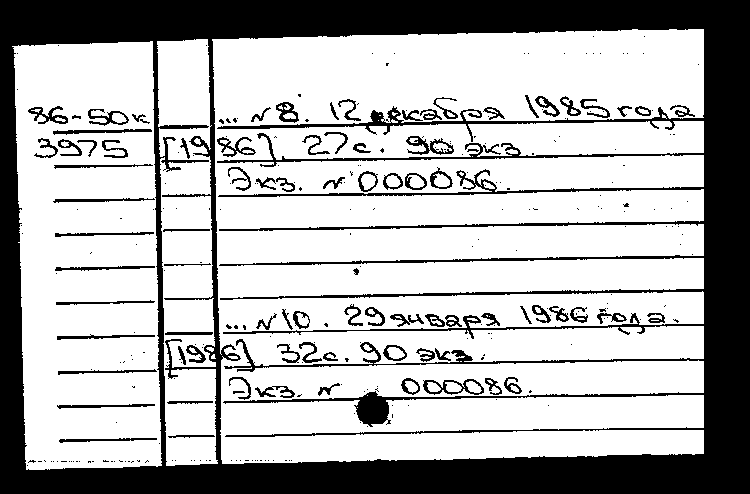 86-50к ... N 8. 12 декабря 1985 года
3975 [1986]. 27с. 90 экз.
Экз. N 000086.
... N 10. 29 января 1986 года.
[1986] 32с. 90 экз.
Экз. N 000086.